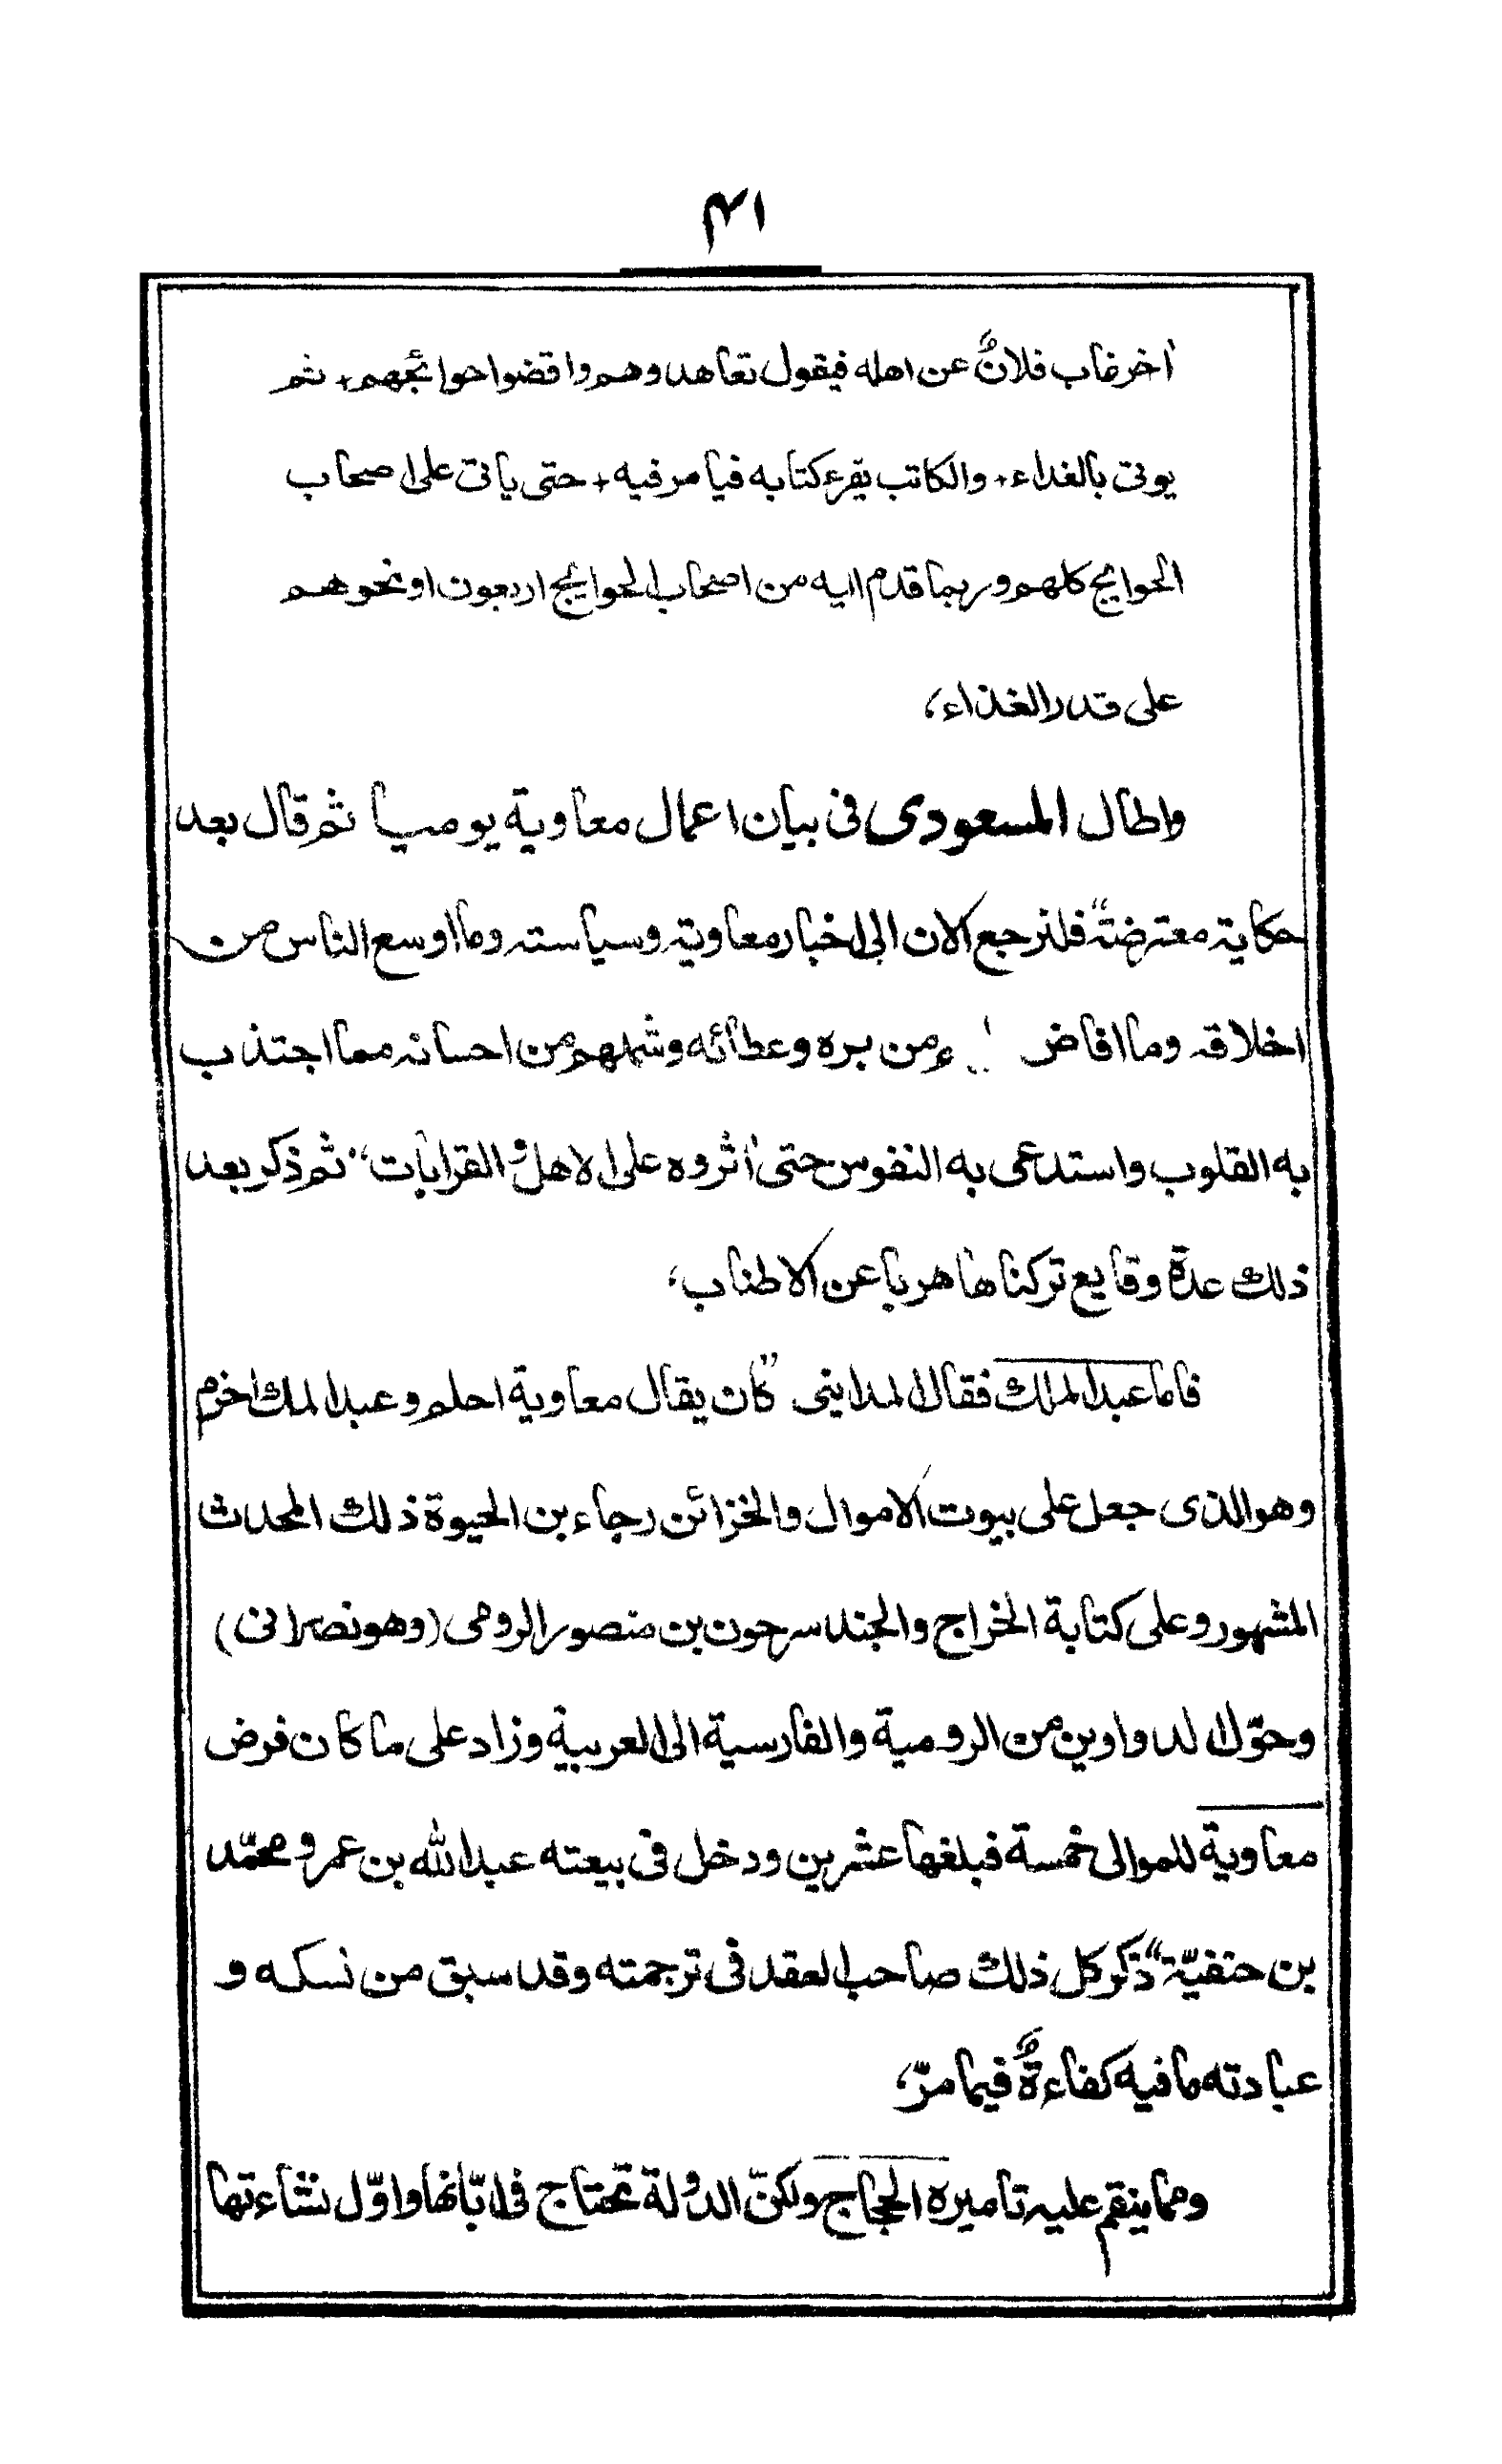 ۴۱
اٰخر غاب فلانٌ عن اهله فيقول تعاهدوهم واقضوا حوائجهم، ثم
يوتى بالغداء، والكاتب يقرء كتابه فيامر فيه، حتى ياتى على اصحاب
الحوايج كلهم وربما قدم اليه من اصحاب الحوايج اربعون او نحوهم
على قدر الغذاء،
واطال المسعودى فى بيان اعمال معاوية يوميا ثم قال بعد
حكاية معترضة "فلنرجع الان الى اخبار معاوية وسياسته وما اوسع الناس من
اخلاقه وما افاض من بره وعطائه وشملهم من احسانه مما اجتذب
به القلوب واستدعى به النفوس حتى اٰثروه على الاهل و القرابات" ثم ذكر بعد
ذلك عدة وقايع تركناها هربا عن الاطناب،
فاما عبد الملك فقال المداينى "كان يقال معاوية احلم وعبد الملك اخزم
وهو الذى جعل على بيوت الاموال والخزائن رجاء بن الحيوة ذلك المحدث
المشهور وعلى كتابة الخراج والجند سرحون بن منصور الرومى (وهو نصرانى)
وحوّل الدواوين من الرومية والفارسية الى العربية وزاد على ما كان فرض
معاوية للموالى خمسة فبلغها عشرين ودخل فى بيعته عبد الله بن عمر و محمّد
بن حنفيّة" ذكر كل ذلك صاحب العقد فى ترجمته وقد سبق من نسكه و
عبادته ما فيه كفاءةٌ فيما مرّ،
ومما ينقم عليه تاميره الحجاج ولكنّ الدولة تحتاج فى ابّانها واوّل نشاءتها